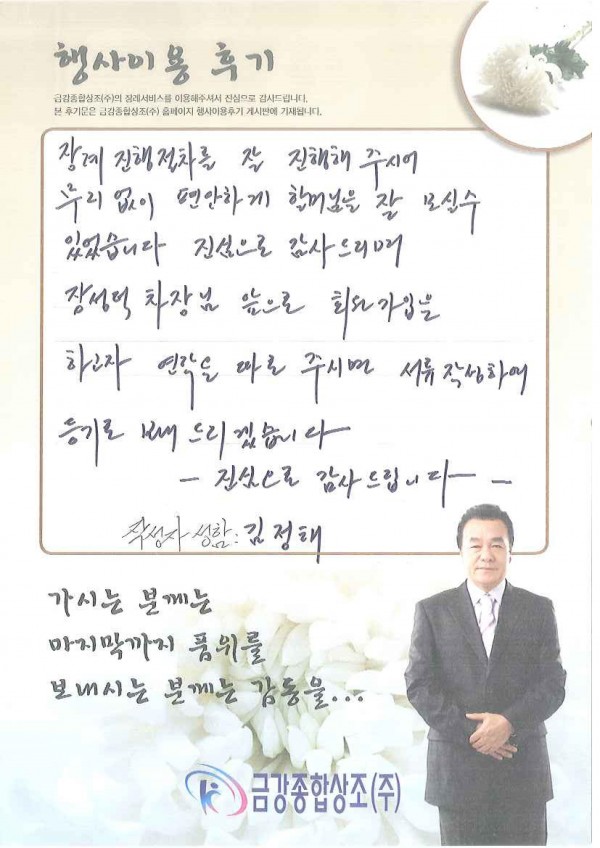 행사이용 후기
금강종합상조(주)의 장례서비스를 이용해주셔서 진심으로 감사드립니다.
본 후기문은 금강종합상조(주) 홈페이지 행사이용후기 게시판에 기재됩니다.
장례 진행절차를 잘 진행해 주시어
무리 없이 편안하게 할머님을 잘 모실수
있었습니다 진심으로 감사드리며
장성덕 차장님 앞으로 회원가입을
하고자 연락을 따로 주시면 서류작성하여
등기로 보내 드리겠습니다
- 진심으로 감사드립니다 -
작성자 성함: 김정태
가시는 분께는
마지막까지 품위를
보내시는 분께는 감동을...
금강종합상조(주)